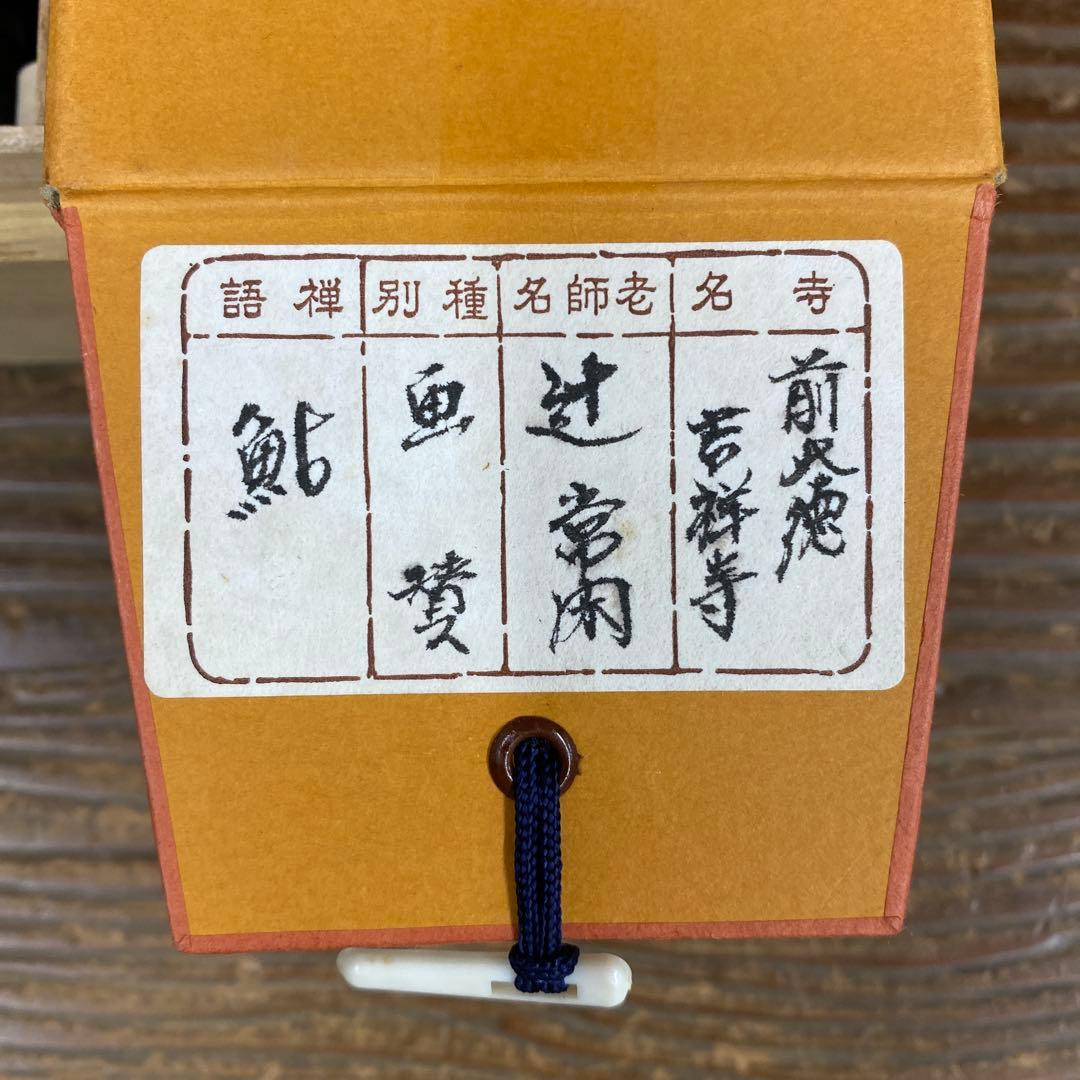 寺名
前大徳
吉祥寺
老師名
辻常閑
種別
画讃
禅語
鮎